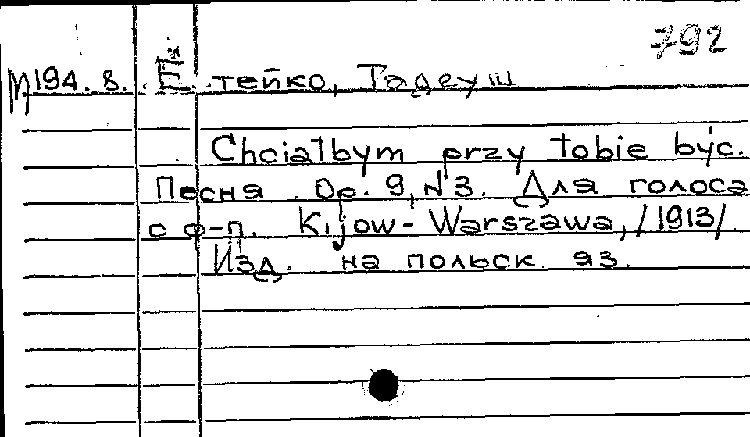 792
М194.8. тейко, Тадеуш
Chciałbym przy tobie być.
Песня. Op. 9, №3. Для голоса
с ф-п. Kijow-Warszawa, /1913/.
Изд. на польск. яз.